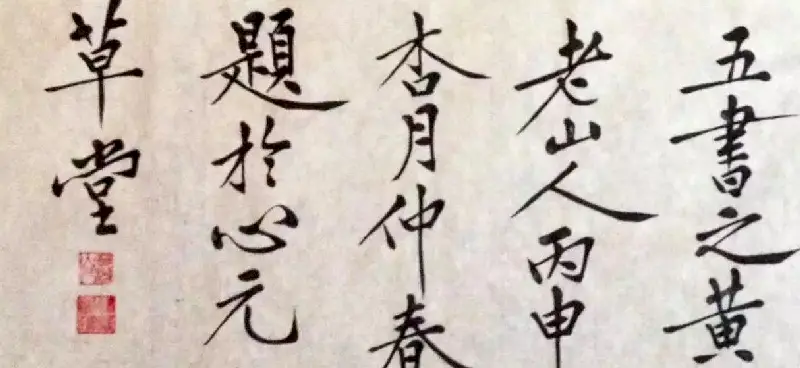 五書之黄
老山人丙申
杏月仲春
題於心元
草堂